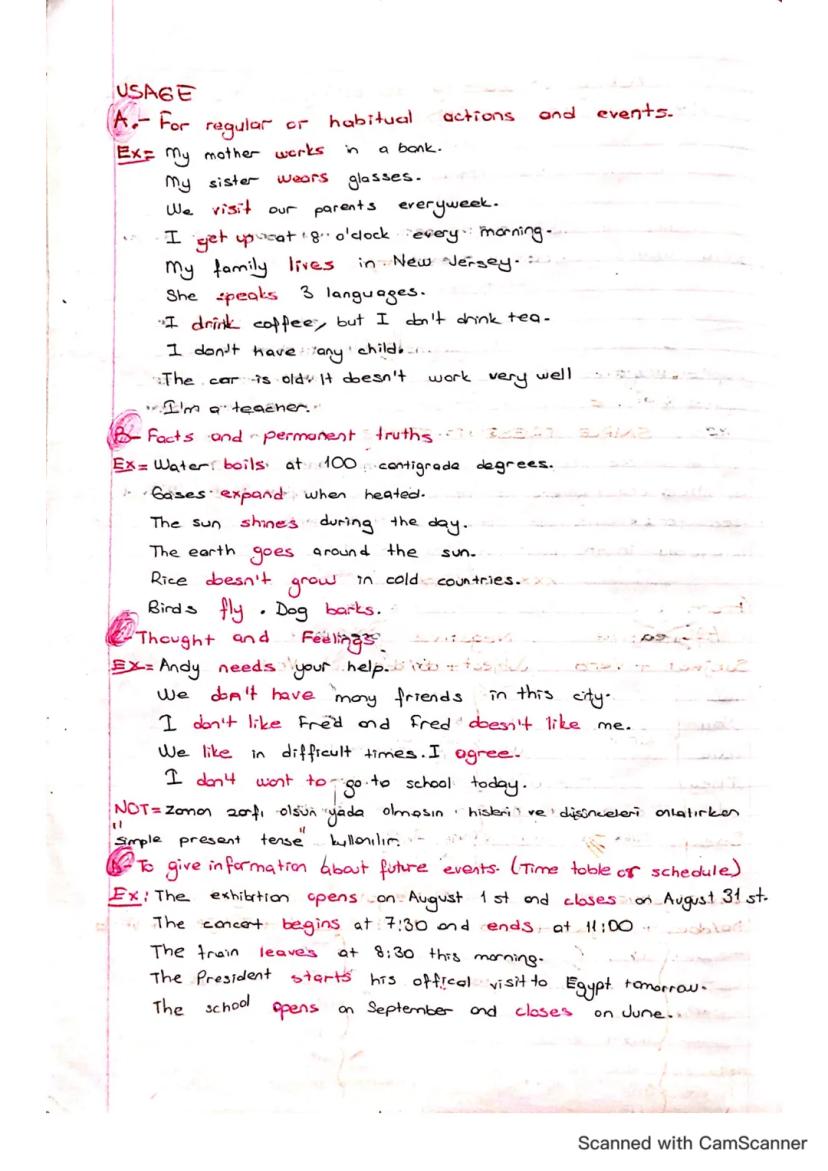 USAGE
A.- For regular or habitual actions and events.
Ex= My mother works in a bank.
My sister wears glasses.
We visit our parents everyweek.
I get up at 8 o'clock every morning.
My family lives in New Jersey.
She speaks 3 languages.
I drink coffee, but I don't drink tea.
I don't have any child.
The car is old. It doesn't work very well
I'm a teacher.
B- Facts and permanent truths
Ex= Water boils at 100 centigrade degrees.
Gases expand when heated.
The sun shines during the day.
The earth goes around the sun.
Rice doesn't grow in cold countries.
Birds fly. Dog barks.
Thought and Feelings.
Ex= Andy needs your help.
We don't have many friends in this city.
I don't like Fred and Fred doesn't like me.
We like in difficult times. I agree.
I don't want to go to school today.
NOT= Zaman zarfı olsun yada olmasın hisleri ve düşünceleri anlatırken
"simple present tense" kullanılır.
To give information about future events. (Time table or schedule)
Ex: The exhibition opens on August 1 st and closes on August 31 st.
The concert begins at 7:30 and ends at 11:00
The train leaves at 8:30 this morning.
The President starts his offical visit to Egypt tomorrow.
The school opens on September and closes on June.
Scanned with CamScanner